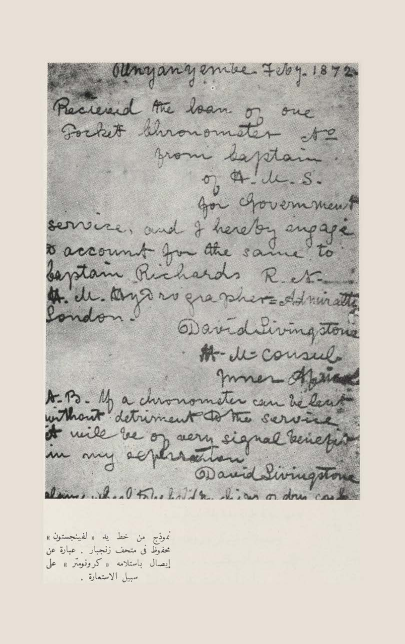 Unyanyembe Feby. 1872
Recieved the loan of one
Pocket Chronometer No
from Captain
of H. M. S.
for Government
service, and I hereby engage
to account for the same to
Captain Richards R. N.
H. M. Hydrographer = Admiralty
London.
David Livingstone
H. M. Consul
Inner Africa
N.B. If a chronometer can be lent
without detriment to the service
it will be of very signal benefit
in my operation
David Livingstone
نموذج من خط يد « لفينجستون »
محفوظ في متحف زنجبار . عبارة عن
إيصال باستلامه « كرونومتر » على
سبيل الاستعارة .